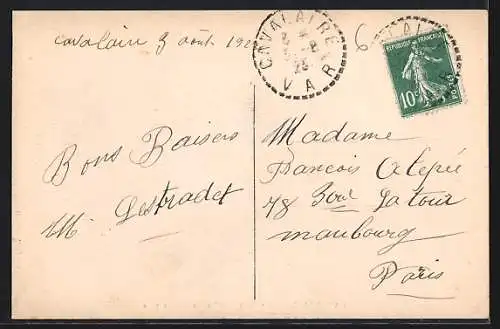 Cavalaire 3 août 192
CAVALAIRE
VAR
6
RÉPUBLIQUE FRANÇAISE
10c
POSTES
Bons Baisers
M Lestradet
Madame
Francois
78 Bou La tour
maubourg
Paris